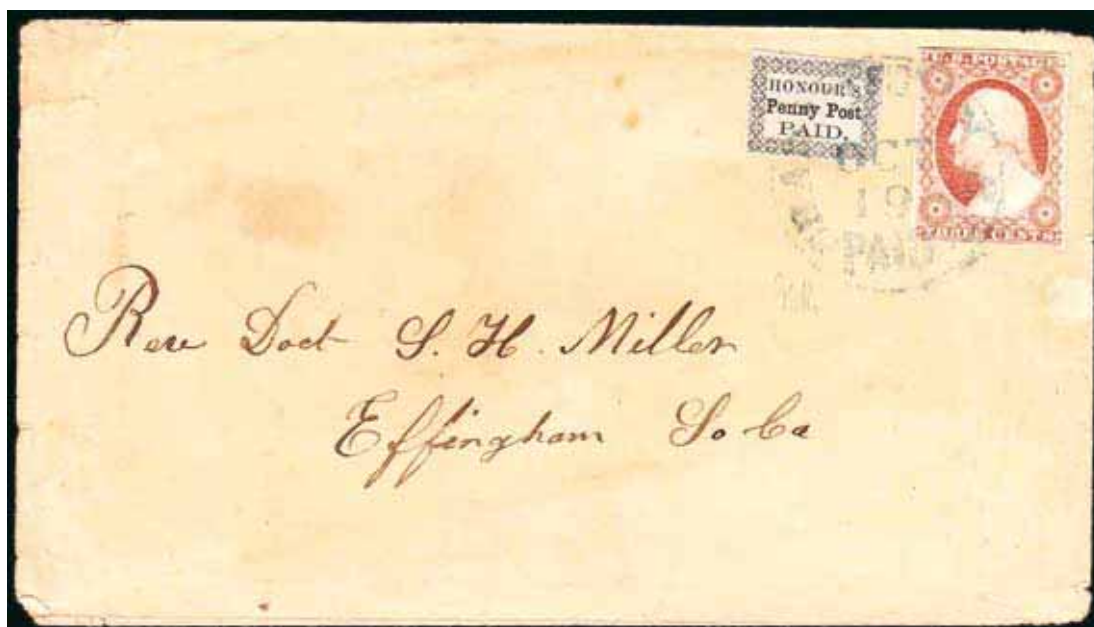 HONOUR'S
Penny Post
PAID.
THREE CENTS
19
PAID
Rev Doct S. H. Miller
Effingham So Ca